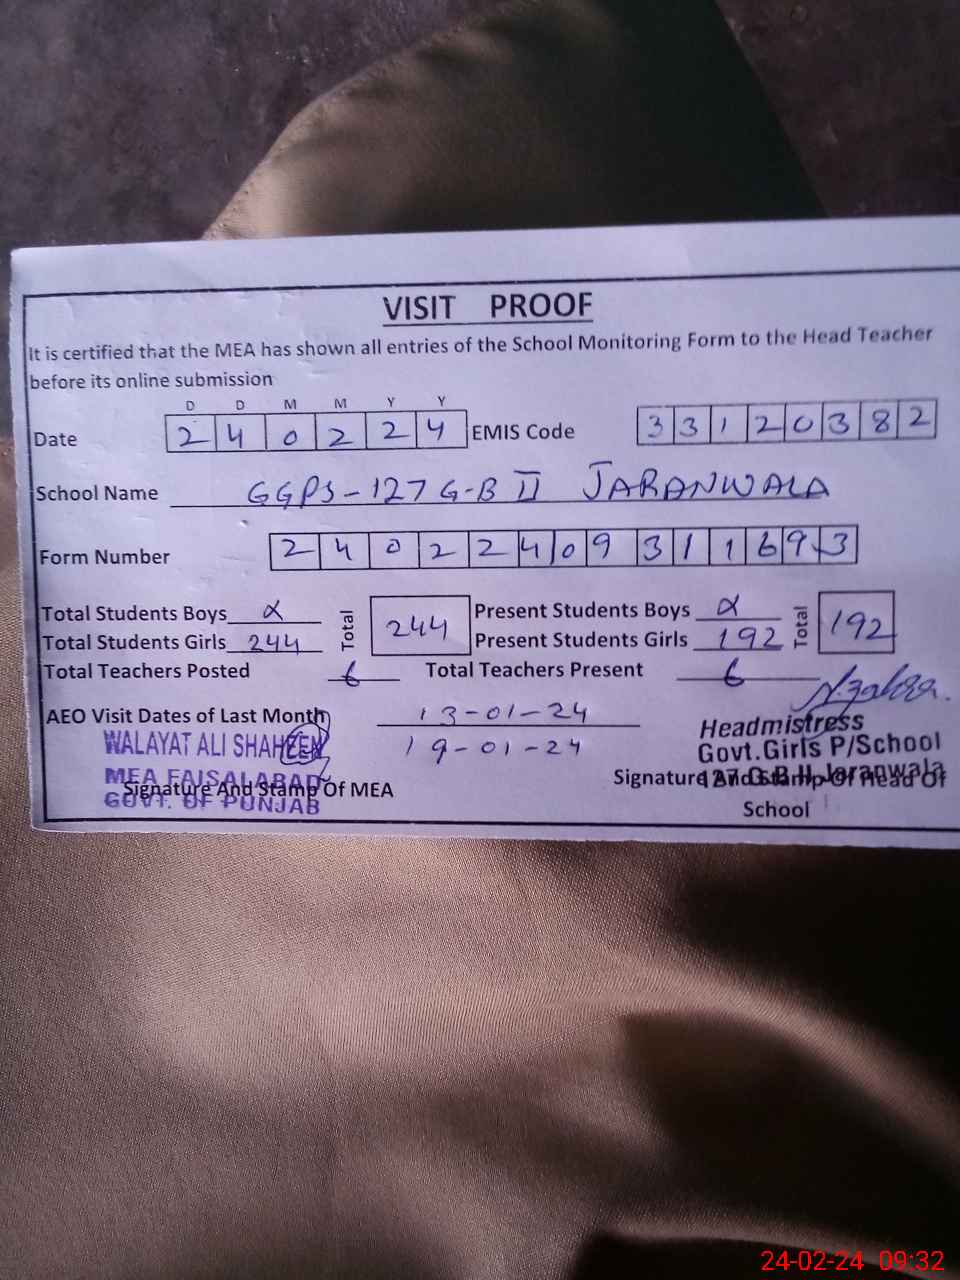 VISIT PROOF
It is certified that the MEA has shown all entries of the School Monitoring Form to the Head Teacher
before its online submission
D D M M Y Y
Date 2 4 0 2 2 4 EMIS Code 3 3 1 2 0 3 8 2
School Name GGPS-127 G-B II JARANWALA
Form Number 2 4 0 2 2 4 0 9 3 1 1 6 9 3
Total Students Boys α Total 244 Present Students Boys α Total 192
Total Students Girls 244 Present Students Girls 192
Total Teachers Posted 6 Total Teachers Present 6
N.Zahra.
AEO Visit Dates of Last Month 13-01-24
19-01-24
WALAYAT ALI SHAHEEN
MEA FAISALABAD
GOVT. OF PUNJAB
Signature And Stamp Of MEA
Headmistress
Govt.Girls P/School
127 G.B II Jaranwala
Signature And Stamp Of Head Of
School
24-02-24 09:32